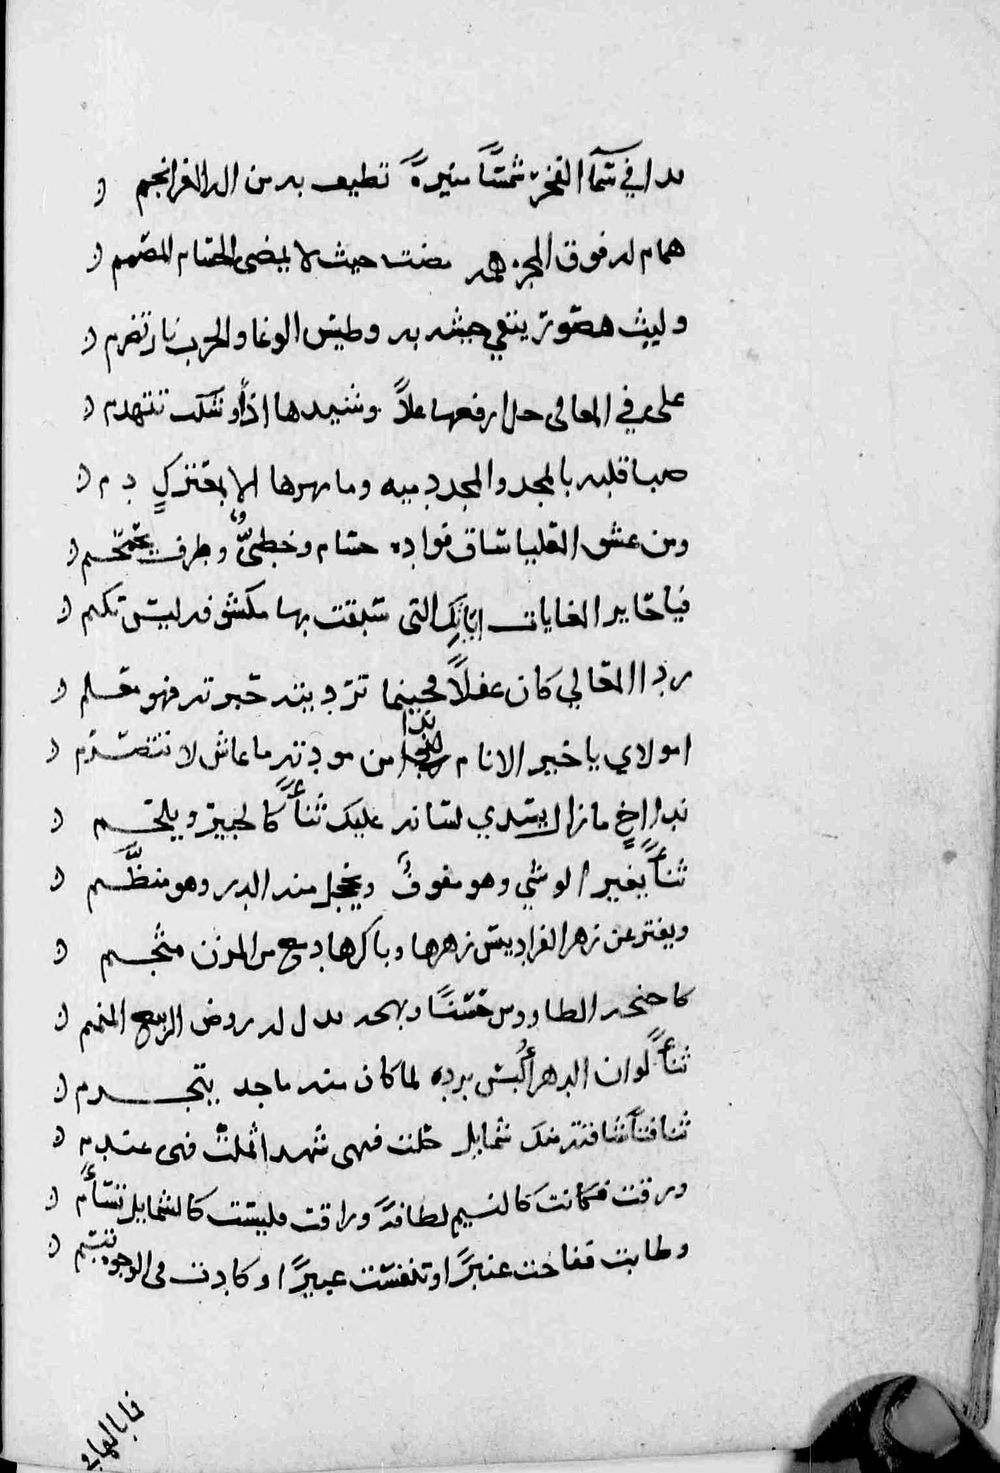 بدا في سما الفخر شمسًا منيرةً تطيف به من اله الغر انجم
همام له فوق المجره همه مضت حيث لا يمضي الحسام المصمم
وليث هصور يتقي جيشه به وطيس الوغا والحرب نار تضرم
علي في المعالي حل ارفعها علاً وشيدها اذ اوشكت تتهدم
صبا قلبه بالمجد والمجد دميه وما مهرها الا
ومن عشق العليا ساق فواده حسام وخطيٌّ وطرف
فيا حايز الغايات التي سبقت بها مكشوفه ليس تكتم
ردا المعالي كان غفلاً فحينما ترديته حبرته فهو معلم
امولاي يا خير الانام ندا من مودته ما عاش لا تتصرم
ندا اخٍ ما زال يسدي لسانه عليك ثنأً كالحبير ويلحم
ثنأً يغير الوشي وهو مفوفٌ ويخجل منه الدر وهو منظَّم
ويفتر عن زهر الفراديس زهرها وباكرها دمع من المزن مثجم
كاجنحه الطاووس حسنًا وبهجه بدل له روض الربيع المنمنم
ثنأً لوان الدهر أُلبس برده لما كان منه ماجد يتجرم
ثنا منك شمايل حلت فهي شهد اثملت فهي عندم
ورقت فكانت كالنسيم لطافةً وراقت فليست كالشمايل تسأم
وطابت ففاحت عنبرًا وتنفست عبيرًا وكادت في الوجوه تبسم